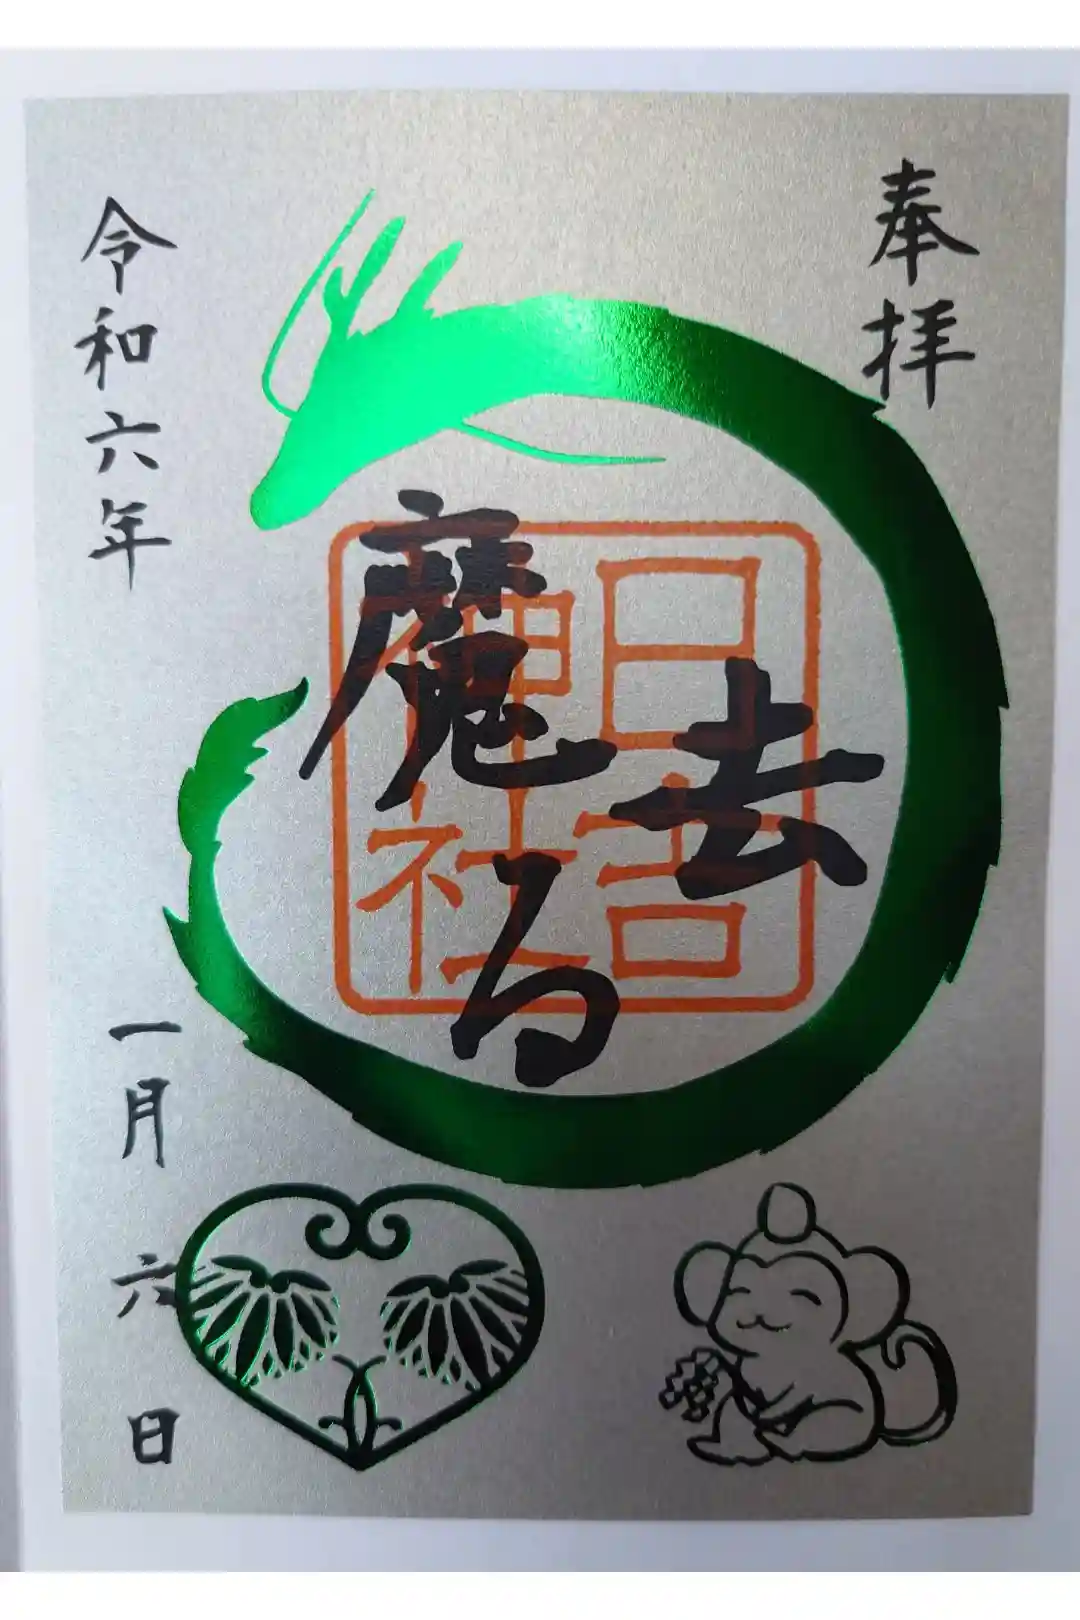 奉拝
日吉
神社
魔去る
令和六年一月六日